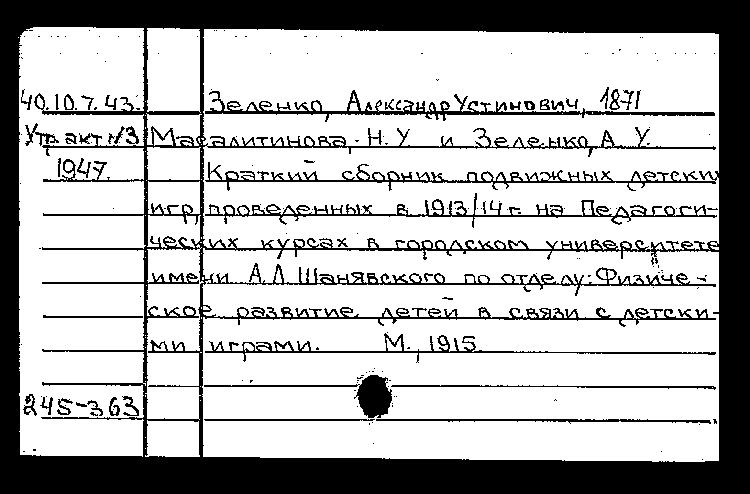 40.10.7.43. Зеленко, Александр Устинович, 1871
Утр. акт №3 Масалитинова, Н. У. и Зеленко, А. У.
1947. Краткий сборник подвижных детски
игр, проведенных в 1913/14 г. на Педагоги-
ческих курсах в городском университете
имени А.Л. Шанявского по отделу: Физиче-
ское развитие детей в связи с детски-
ми играми. М., 1915.
245-363